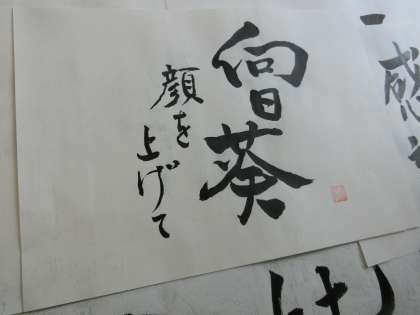 向日葵
顔を
上げて
一
感